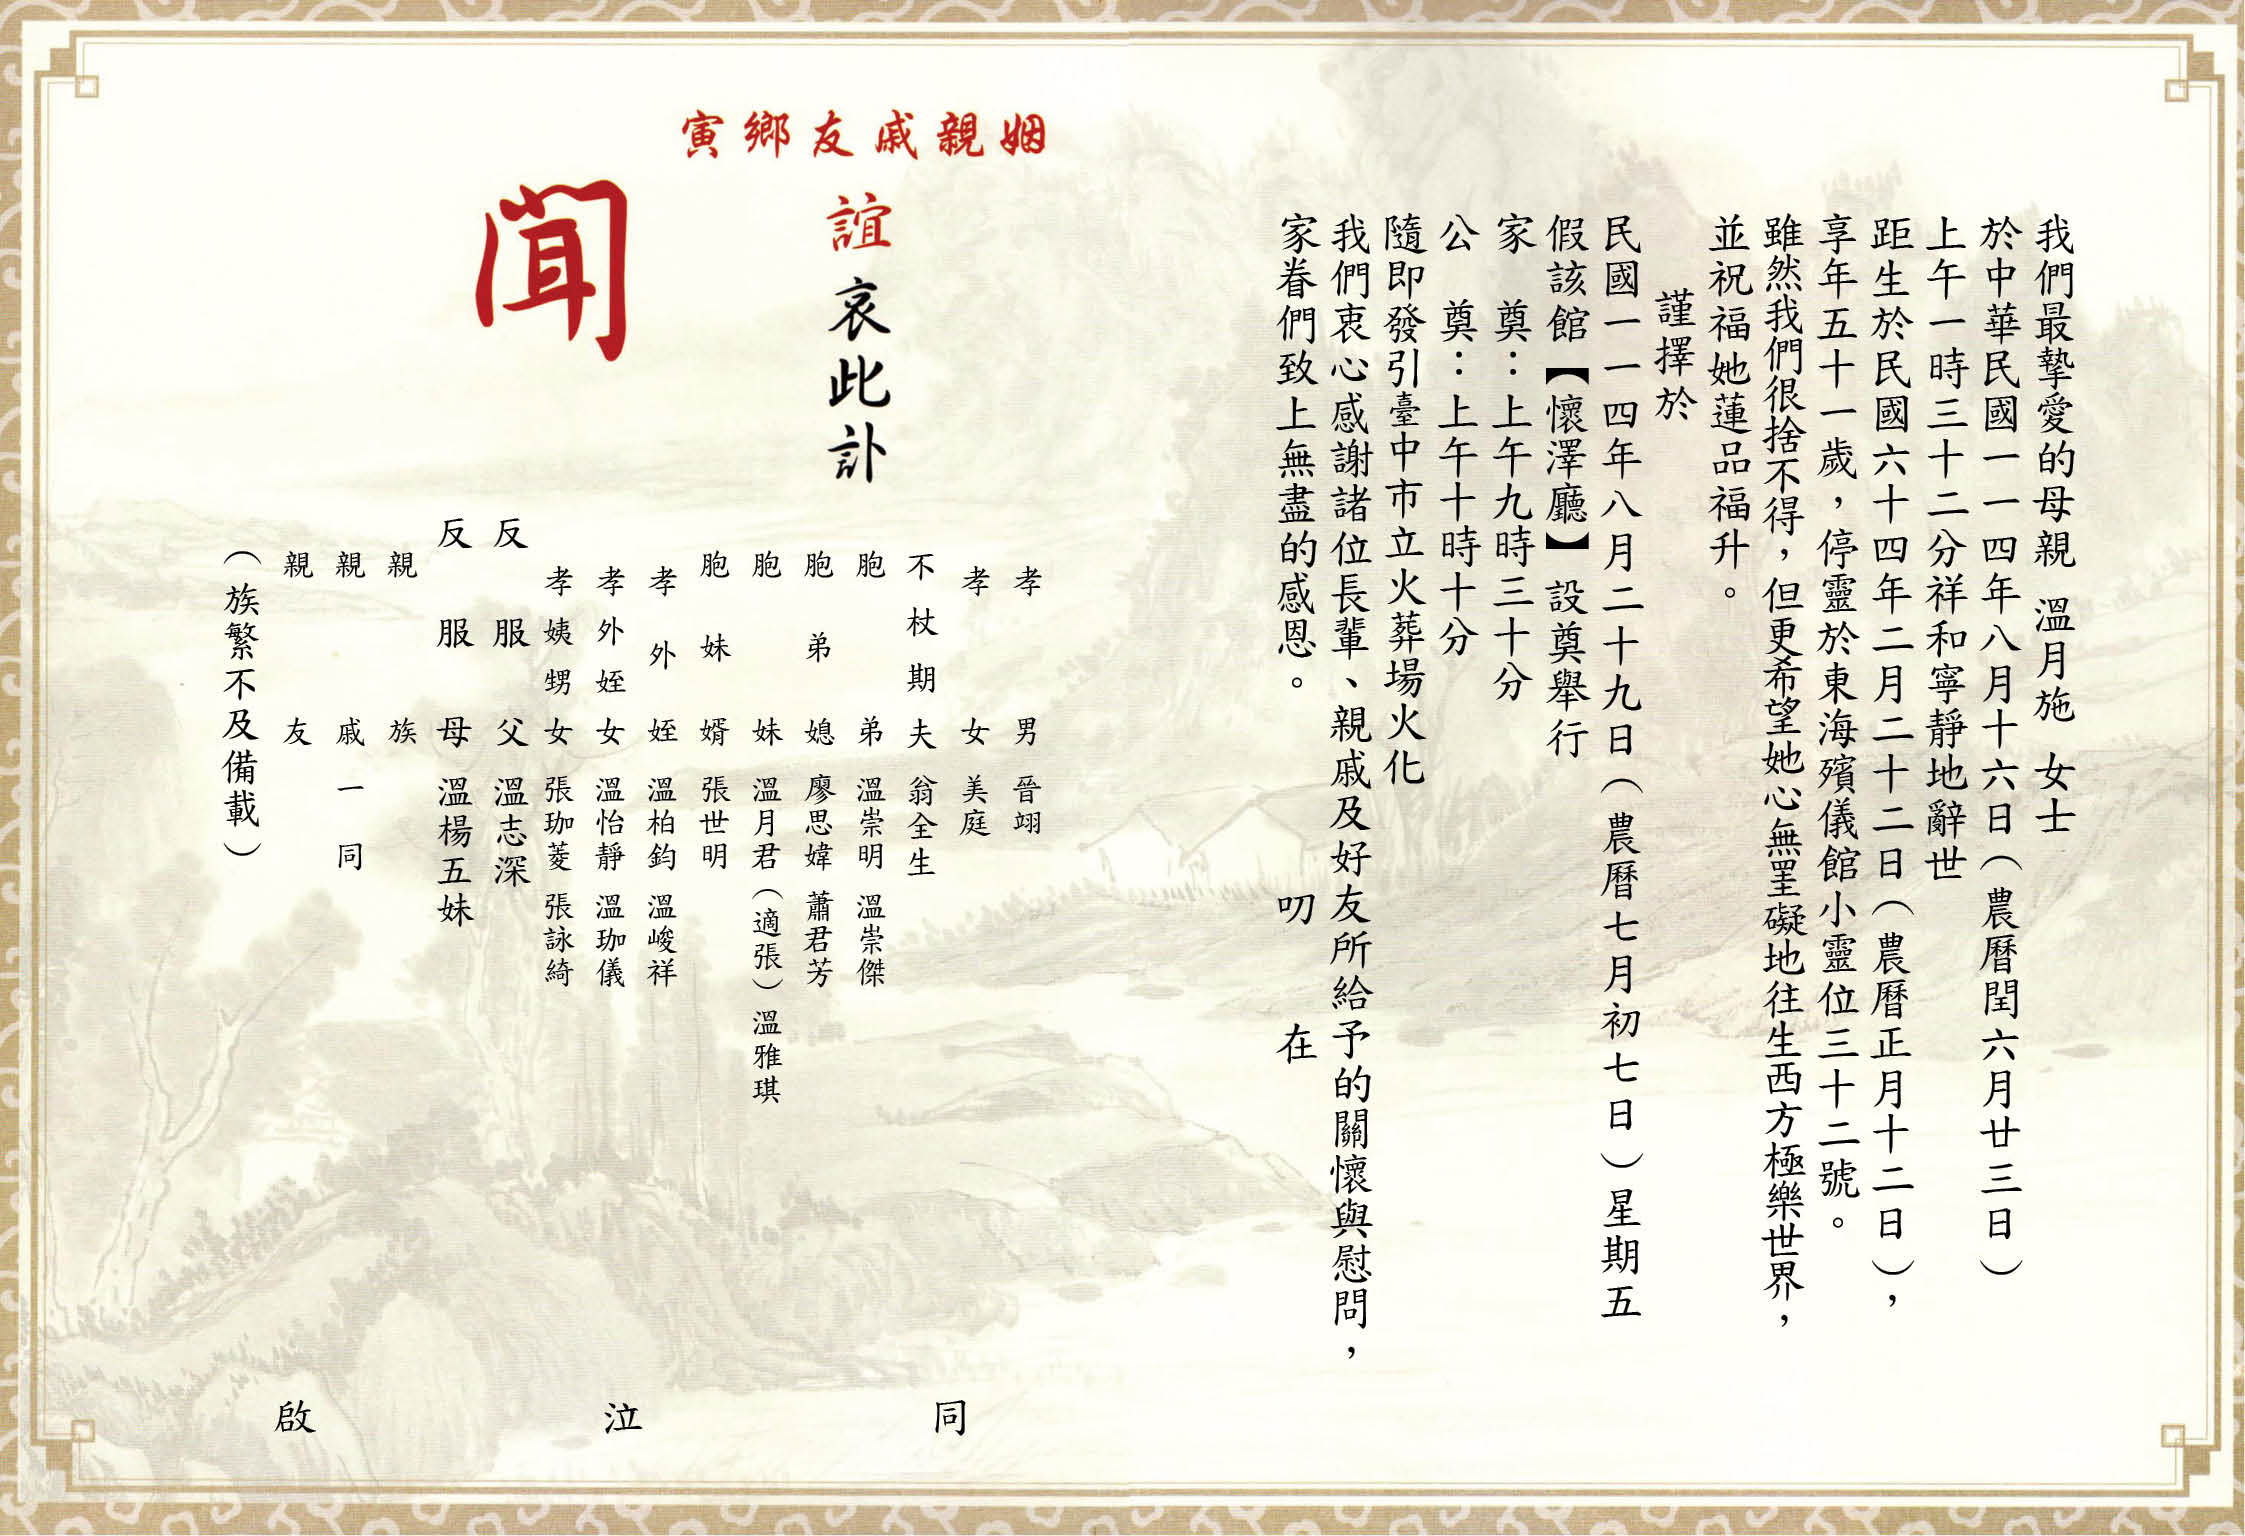 我們最摯愛的母親 溫月施 女士
於中華民國一一四年八月十六日（農曆閏六月廿三日）
上午一時三十二分祥和寧靜地辭世
距生於民國六十四年二月二十二日（農曆正月十二日），
享年五十一歲，停靈於東海殯儀館小靈位三十二號。
雖然我們很捨不得，但更希望她心無罣礙地往生西方極樂世界，
並祝福她蓮品福升。
謹擇於
民國一一四年八月二十九日（農曆七月初七日）星期五
假該館【懷澤廳】設奠舉行
家 奠：上午九時三十分
公 奠：上午十時十分
隨即發引臺中市立火葬場火化
我們衷心感謝諸位長輩、親戚及好友所給予的關懷與慰問，
家眷們致上無盡的感恩。 叨 在
姻親戚友鄉寅
誼哀此訃
聞
孝男 晉翊
孝女 美庭
不杖期夫 翁全生
胞弟 溫崇明 溫崇傑
胞弟媳 廖思媁 蕭君芳
胞妹 溫月君（適張）溫雅琪
胞妹婿 張世明
孝外姪 溫柏鈞 溫峻祥
孝外姪女 溫怡靜 溫珈儀
孝姨甥女 張珈菱 張詠綺
反服父 溫志深
反服母 溫楊五妹
親族
親戚一同
親友
（族繁不及備載）
同泣啟